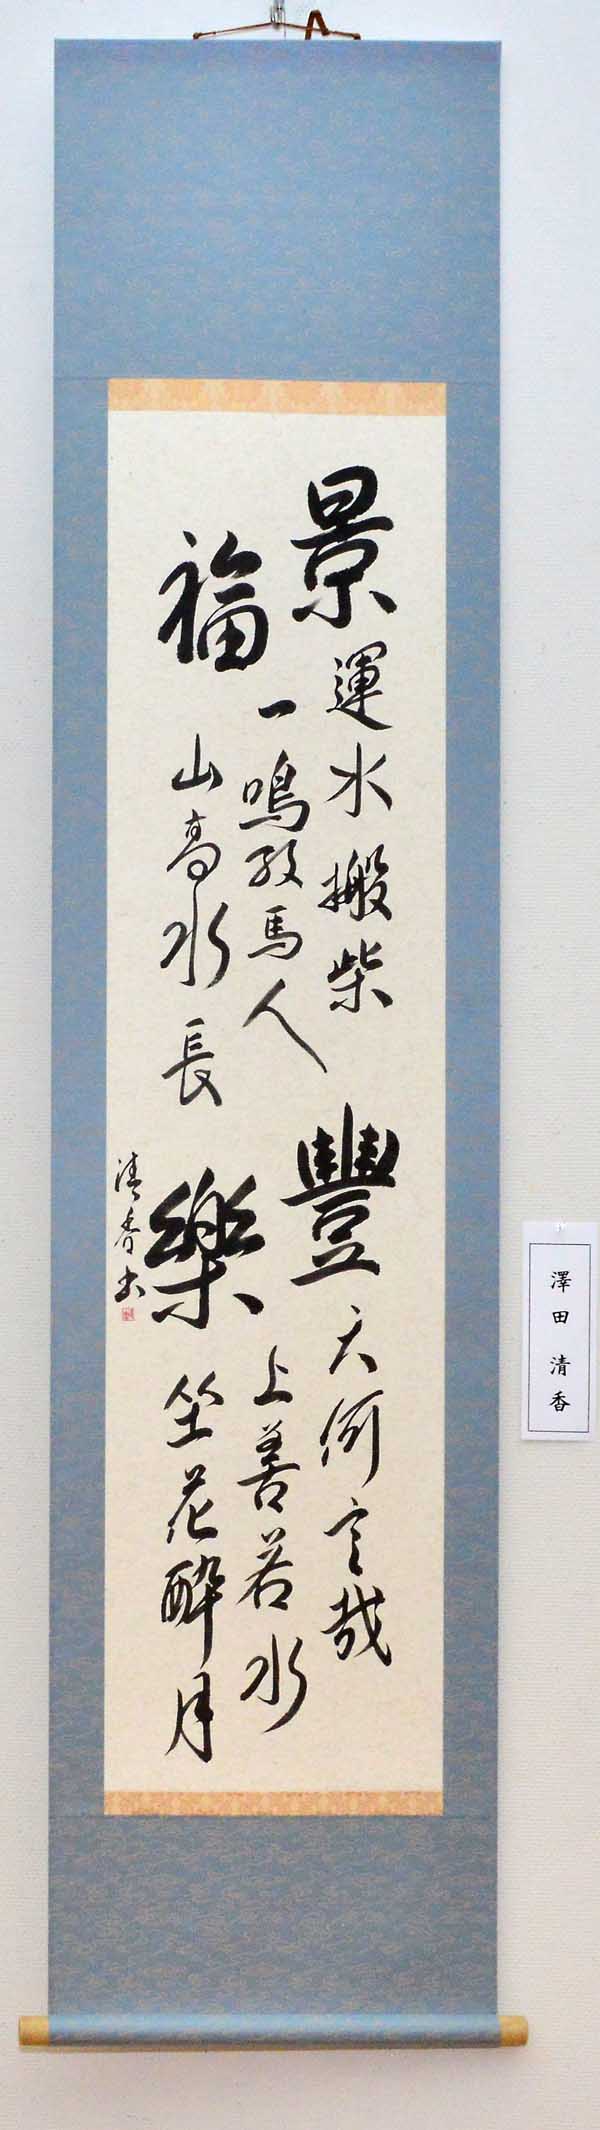 景運水搬柴豐天何言哉
一鳴驚人上善若水
福山高水長樂坐花酔月
清香书
澤田清香